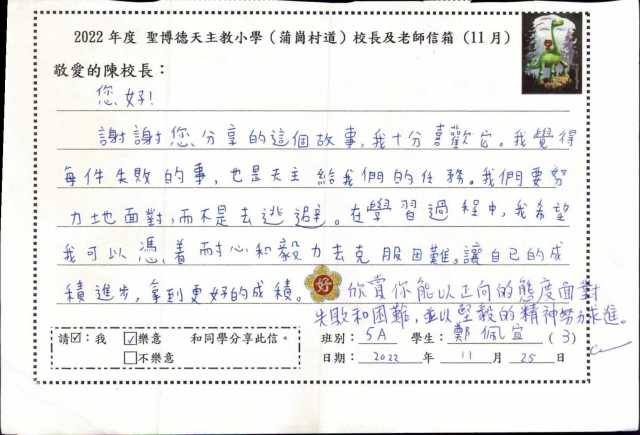 2022 年度 聖博德天主教小學（蒲崗村道）校長及老師信箱（11 月）
敬愛的陳校長：
您好！
謝謝您分享的這個故事，我十分喜歡它。我覺得
每件失敗的事，也是天主給我們的任務。我們要努
力地面對，而不是去逃避。在學習過程中，我希望
我可以憑着耐心和毅力去克服困難，讓自己的成
積進步，拿到更好的成積。
好
欣賞你能以正向的態度面對
失敗和困難，並以堅毅的精神努力求進。
請☑：我 ☑樂意 和同學分享此信。 班別：5A 學生：鄭佩宜（3）
□不樂意 日期：2022 年 11 月 25 日